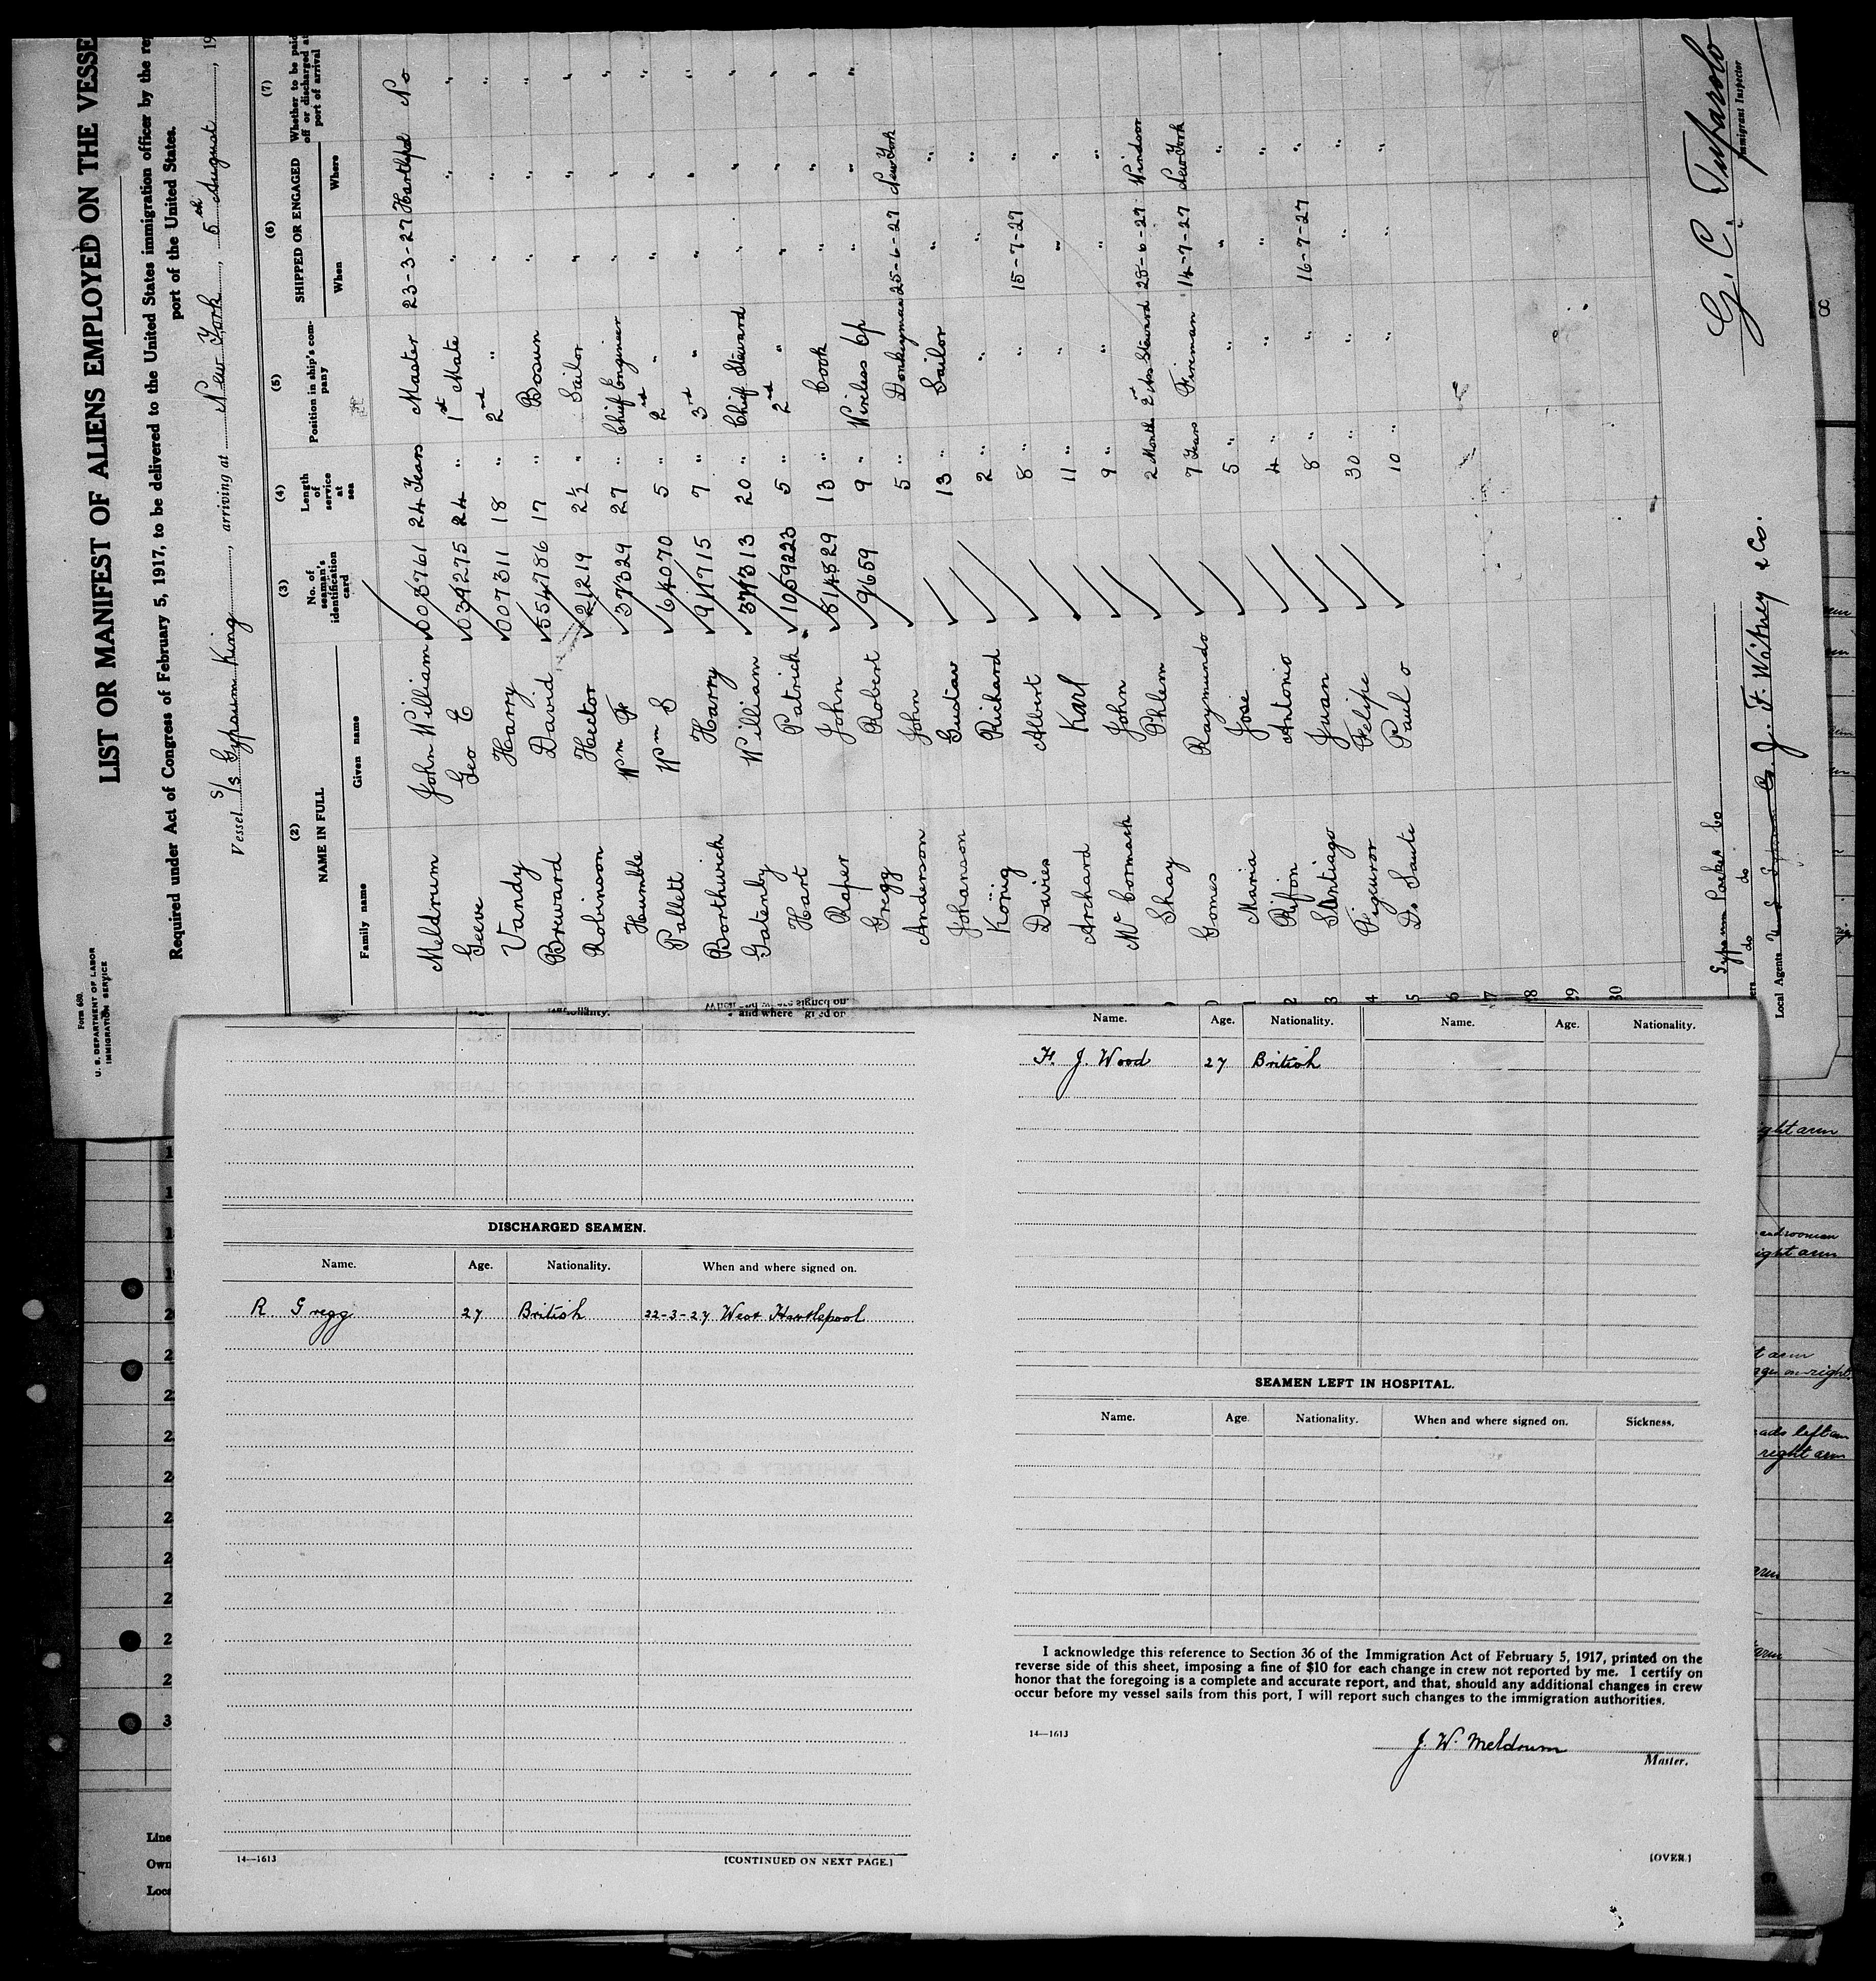 Form 680
U. S. DEPARTMENT OF LABOR
IMMIGRATION SERVICE
LIST OR MANIFEST OF ALIENS EMPLOYED ON THE VESSE
Required under Act of Congress of February 5, 1917, to be delivered to the United States immigration officer by the re
port of the United States.
Vessel S/s Gypsum King, arriving at New York, 5th August, 19
(2) (3) (4) (5) (6) (7)
NAME IN FULL No. of seaman's identification card Length of service at sea Position in ship's company SHIPPED OR ENGAGED Whether to be paid off or discharged at port of arrival
Family name Given name When Where
Meldrum John William 003761 24 Years Master 23-3-27 Hartlepol No
Geeve Geo E 039275 24 " 1st Mate " " "
Vandy Harry 007311 18 " 2nd " " " "
Breward David 554786 17 " Bosun " " "
Robinson Hector 21219 2½ " Sailor " " "
Humble Wm F 37329 27 " Chief Engineer " " "
Pallett Wm S 64070 5 " 2nd " " " "
Borthwick Harry 911715 7 " 3rd " " " "
Gatenby William 37313 20 " Chief Steward " " "
Hart Patrick 1059223 5 " 2nd " " " "
Raper John 814829 13 " Cook " " "
Gregg Robert 9659 9 " Wireless Op " " "
Anderson John 5 " Donkeyman 25-6-27 New York
Johanson Gustav 13 " Sailor " "
König Richard 2 " " " "
Davies Albert 8 " " 15-7-27 "
Archard Karl 11 " " " "
McCormack John 9 " " " "
Shay Phlem 2 Months 2nd Ass Steward 28-6-27 Windsor
Gomes Raymundo 7 Years Fireman 14-7-27 New York
Maria Jose 5 " " " "
Rifon Antonio 4 " " " "
Santiago Juan 8 " " 16-7-27 "
Figeuror Felipe 30 " " " "
De Saute Paulo 10 " " " "
Gypsum Packet Co
do do
Local Agents J. F. Witney & Co.
G. C. Tufarolo
Immigrant Inspector
When and where signed on.
DISCHARGED SEAMEN.
Name. Age. Nationality. When and where signed on.
R Gregg 27 British 22-3-27 West Hartlepool
14—1613 [CONTINUED ON NEXT PAGE.]
Name. Age. Nationality. Name. Age. Nationality.
H. J. Wood 27 British
SEAMEN LEFT IN HOSPITAL.
Name. Age. Nationality. When and where signed on. Sickness.
I acknowledge this reference to Section 36 of the Immigration Act of February 5, 1917, printed on the
reverse side of this sheet, imposing a fine of $10 for each change in crew not reported by me. I certify on
honor that the foregoing is a complete and accurate report, and that, should any additional changes in crew
occur before my vessel sails from this port, I will report such changes to the immigration authorities.
14—1613
J. W. Meldrum
Master.
[OVER.]
ght arm
right arm
left arm
right arm
Line
Own
Loca